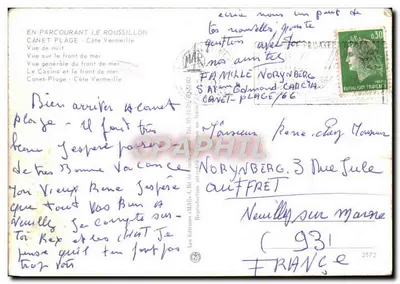 EN PARCOURANT LE ROUSSILLON
CANET PLAGE - Côte Vermeille
Vue de nuit
Vue sur le front de mer
Vue générale du front de mer
Le Casino et le front de mer
Canet-Plage - Côte Vermeille
Bien arriver A Canet
plage - Il fait très
beau J'espère passer
de très Bonne Vacance
Mon Vieux René J'espère
que tout vas Bien A
Neuilly Je compte sur
toi Rex et les chat Je
pense qu'il ten font pas
trop voir
écris nous un peut de
tes nouvelles
nos amitiés
FAMILLE NORYNBERG
Edmond GARCIA
CANET-PLAGE/66
0,30
REPUBLIQUE FRANÇAISE
Monsieur René chez Monsieur
NORYNBERG. 3 Rue Jule
AUFFRET
Neuilly sur marne
(93)
FRANCE
MAR
PRCARTIS